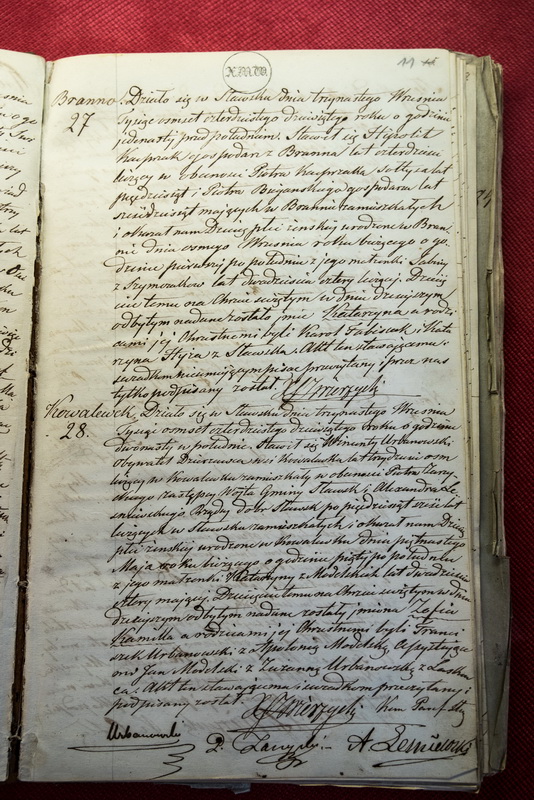 11
Branno. Działo się w Sławsku dnia trzynastego Wrzesnia
27
tysiąc osmset czterdziestego dziewiątego roku o godzinie
jedenastej przed południem. Stawił się Hipolit
Kacprzak gospodarz z Branna lat czterdzieści
liczący w obecności Piotra Kacprzaka Sołtysa lat
pięćdziesiąt i Piotra gospodarza lat
sześćdziesiąt mających w Brannie zamieszkałych
i okazał nam Dziecię płci żenskiej urodzone w Bran-
nie dnia osmego Wrzesnia roku bieżącego o go-
dzinie pierwszej po południu z jego małżonki
z Szymczaków lat dwadzieścia cztery liczącej. Dziecię-
ciu temu na Chrzcie świętym w dniu dzisiejszym
odbytym nadane zostało imie Katarzyna a rodzi-
cami jej Chrzestnemi byli Karol Fabisiak i Kata-
rzyna z Sławska. Akt ten stawającemu i
swiadkom nieumiejącym pisać przeczytany i przez nas
tylko podpisany został.
Kowalewek. Działo się w Sławsku dnia trzynastego Wrzesnia
28.
Tysiąc osmset czterdziestego dziewiątego roku o godzinie
dwunastej w południe. Stawił się Wincenty Urbanowski
obywatel Dzierzawca wsi Kowalewka lat trzydzieści osm
liczący w Kowalewku zamieszkały w obecności Piotra
zastępcy Wójta Gminy Sławsk, i Alexandra
Rządcy dobr Sławsk po pięćdziesiąt sześć lat
liczących w Sławsku zamieszkałych i okazał nam Dziecię
płci żenskiej urodzone w Kowalewku dnia piętnastego
Maja roku bieżącego o godzinie piątej po południu
z jego małżonki z Modelskich lat dwadzieścia
cztery mającej. Dziecięciu temu na Chrzcie świętym w dniu
dzisiejszym odbytym nadane zostały imiona Zofia
Kamilla a rodzicami jej Chrzestnemi byli Franci-
szek Urbanowski z Apolonią Modelską, Assystując
Jan Modelski z Zuzanną Urbanowską z
Akt ten stawającemu i swiadkom przeczytany i
podpisany został.
Urbanowski
P.
A